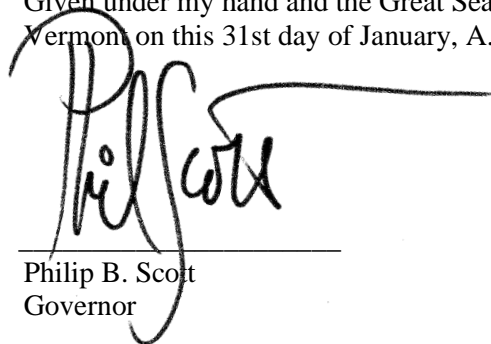 Given under my hand and the Great Sea
Vermont on this 31st day of January, A.
Phil Scott
Philip B. Scott
Governor